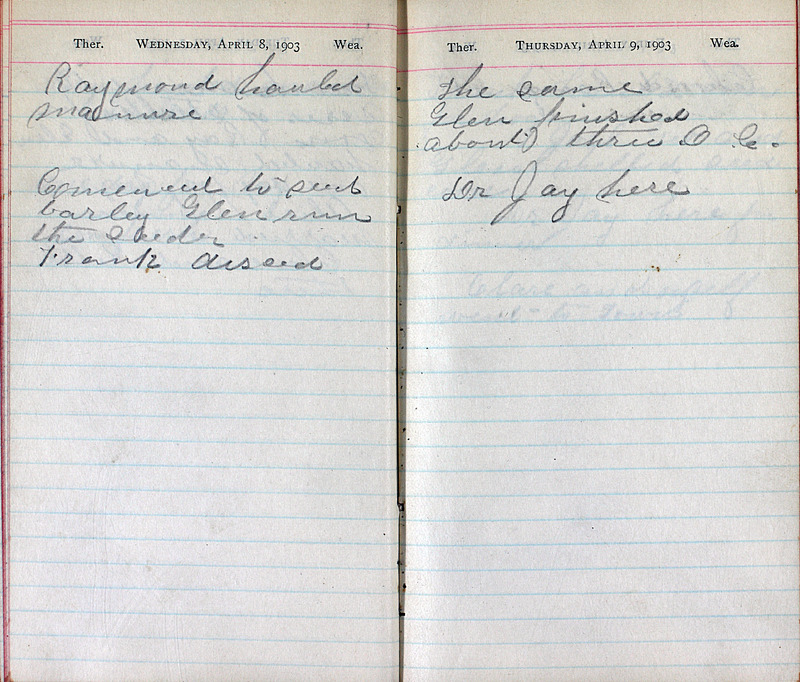 Ther. WEDNESDAY, APRIL 8, 1903 Wea.
Raymond hauled
manure
Comenced to seed
barley Glen run
the seeder
Frank disced
Ther. THURSDAY, APRIL 9, 1903 Wea.
The same
Glen finished
about three O. C.
Dr Jay here